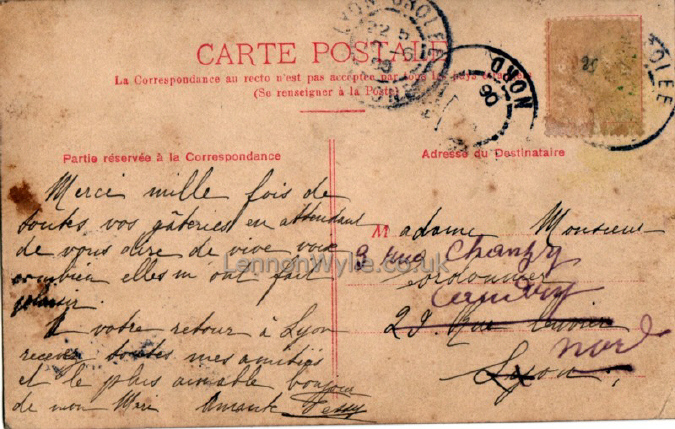 CARTE POSTALE
La Correspondance au recto n'est pas acceptée par tous les pays
(Se renseigner à la Poste)
LYON GROLEE
22 5
NORD
OLEE
Partie réservée à la Correspondance
Merci mille fois de
toutes vos gâteries en attendant
de vous dire de vive voix
combien elles m'ont fait
plaisir.
A votre retour à Lyon
recevez toutes mes amitiés
et le plus aimable bonjour
de mon Mari
Adresse du Destinataire
Madame Monsieur
3 Rue Chanzy
Caudry
29 Rue Cuvier
Nord
Lyon
LennonWylie.co.uk